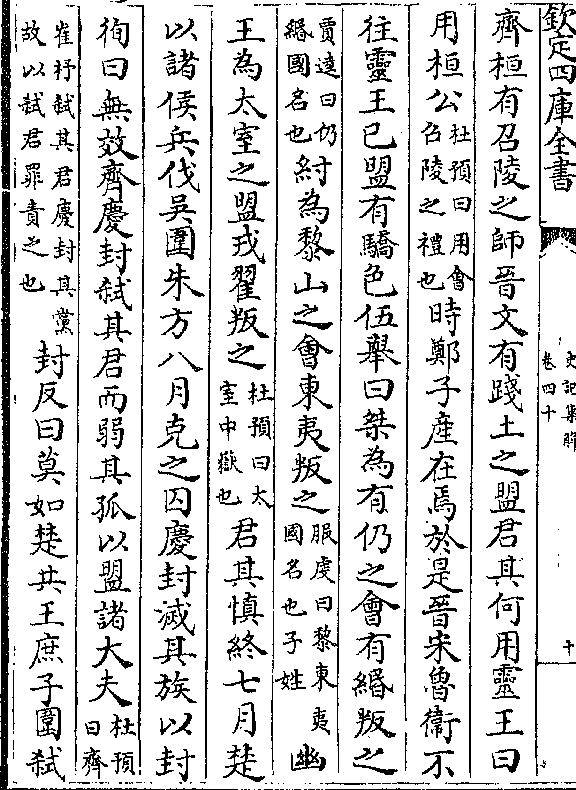 欽定四庫全書
史記集解
卷四十
十
齊桓有召陵之師晉文有踐土之盟君其何用靈王曰
用桓公杜預曰用會召陵之禮也時鄭子產在焉於是晉宋魯衛不
往靈王已盟有驕色伍舉曰桀為有仍之會有緡叛之
賈逵曰仍緡國名也紂為黎山之會東夷叛之服虔曰黎東夷國名也子姓幽
王為太室之盟戎翟叛之杜預曰太室中嶽也君其慎終七月楚
以諸侯兵伐吳圍朱方八月克之囚慶封滅其族以封
徇曰無效齊慶封弒其君而弱其孤以盟諸大夫杜預曰齊
崔杼弒其君慶封其黨故以弒君罪責之也封反曰莫如楚共王庶子圍弒